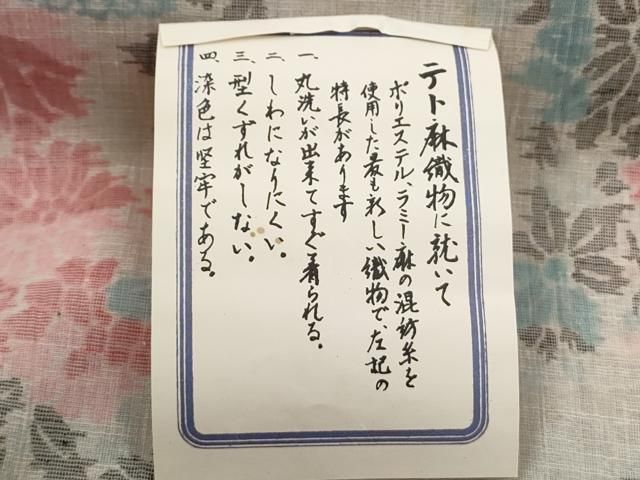 テト麻織物に就いて
ポリエステル、ラミー麻の混紡糸を
使用した最も新しい織物で、左記の
特長があります
一、丸洗いが出来てすぐ着られる。
二、しわになりにくい。
三、型くずれがしない。
四、染色は堅牢である。